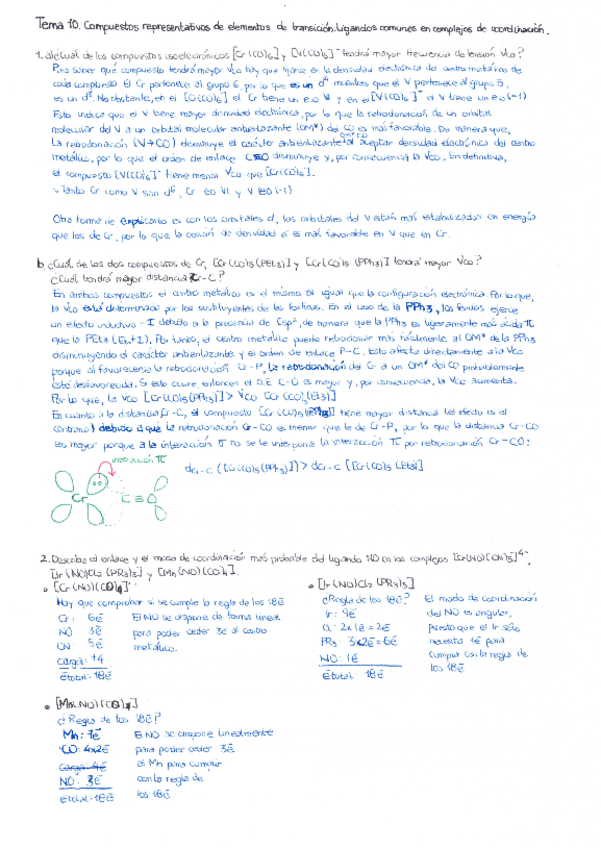 Tema 10. Compuestos representativos de elementos de transición. Ligandos comunes en complejos de coordinación.
1. a) ¿Cuál de los compuestos isoelectrónicos [Cr(CO)6] y [V(CO)6]⁻ tendrá mayor frecuencia de tensión νco?
Para saber qué compuesto tendrá mayor νco hay que fijarse en la densidad electrónica del centro metálico de
cada complejo. El Cr pertenece al grupo 6, por lo que es un d⁶ mientras que el V pertenece al grupo 5,
es un d⁵. No obstante, en el [Cr(CO)6] el Cr tiene un e.o y en el [V(CO)6]⁻ el V tiene un e.o (-1)
Esto indica que el V tiene mayor densidad electrónica, por lo que la retrodonación de un orbital
molecular del V a un orbital molecular antienlazante (OM*) del CO es más favorable. De manera que,
La retrodonación (V→CO) disminuye el carácter antienlazante al aceptar densidad electrónica del centro
metálico, por lo que el orden de enlace C≡O disminuye y, por consecuencia la νco. En definitiva,
el compuesto [V(CO)6]⁻ tiene menor νco que [Cr(CO)6].
Tanto Cr como V son d⁶, Cr EO y V EO (-1)
Otra forma de explicarlo es con los orbitales d, los orbitales del V están más estabilizados en energía
que los de Cr, por lo que la cesión de densidad e⁻ es más favorable en V que en Cr.
b. ¿Cuál de los dos compuestos de Cr, [Cr(CO)5(PEt3)] y [Cr(CO)5(PPh3)] tendrá mayor νco?
¿Cuál tendrá mayor distancia Cr-C?
En ambos compuestos el centro metálico es el mismo al igual que la configuración electrónica. Por lo que,
la νco está determinado por los sustituyentes de las fosfinas. En el caso de la PPh3, los fenilos ejerce
un efecto inductivo -I debido a la presencia de Csp², de manera que la PPh3 es ligeramente más ácida π
que la PEt3 (Et,+I). Por tanto, el centro metálico puede retrodonar más fácilmente al OM* de la PPh3
disminuyendo el carácter antienlazante y el orden de enlace P-C. Esto afecta directamente a la νco
porque al favorecerse la retrodonación Cr-P, la retrodonación del Cr a un OM* del CO probablemente
esté desfavorecida. Si esto ocurre, entonces el O.E C-O es mayor y, por consecuencia, la νco aumenta.
Por lo que, la νco [Cr(CO)5(PPh3)] > νco [Cr(CO)5(Et3)]
En cuanto a la distancia Cr-C, el compuesto [Cr(CO)5(PPh3)] tiene mayor distancia (el efecto es al
contrario) debido a que la retrodonación Cr-CO es menor que la de Cr-P, por lo que la distancia Cr-CO
es mayor porque a la interacción σ no se le interpone la interacción π por retrodonación Cr-CO:
interacción π
dCr-C ([Cr(CO)5(PPh3)]) > dCr-C ([Cr(CO)5(Et3)]
Cr C≡O
2. Describe el enlace y el modo de coordinación más probable del ligando NO en los complejos [Cr(NO)(CN)5]⁴⁻,
[Ir(NO)Cl2(PR3)3] y [Mn(NO)(CO)4].
• [Cr(NO)(CN)5]⁴⁻
Hay que comprobar si se cumple la regla de los 18ē
Cr: 6ē
NO 3ē
CN: 5ē
Carga: +4
ētotal: 18ē
El NO se dispone de forma lineal
para poder ceder 3ē al centro
metálico.
• [Ir(NO)Cl2(PR3)3]
¿Regla de los 18ē?
Ir: 9ē
Cl: 2x1ē=2ē
PR3: 3x2ē=6ē
NO: 1ē
ētotal: 18ē
El modo de coordinación
del NO es angular,
puesto que el Ir sólo
necesita 1ē para
cumplir con la regla de
los 18ē
• [Mn(NO)(CO)4]
¿Regla de los 18ē?
Mn: 7ē
CO: 4x2ē
NO: 3ē
ētotal: 18ē
El NO se dispone linealmente
para poder ceder 3ē
al Mn para cumplir
con la regla de
los 18ē